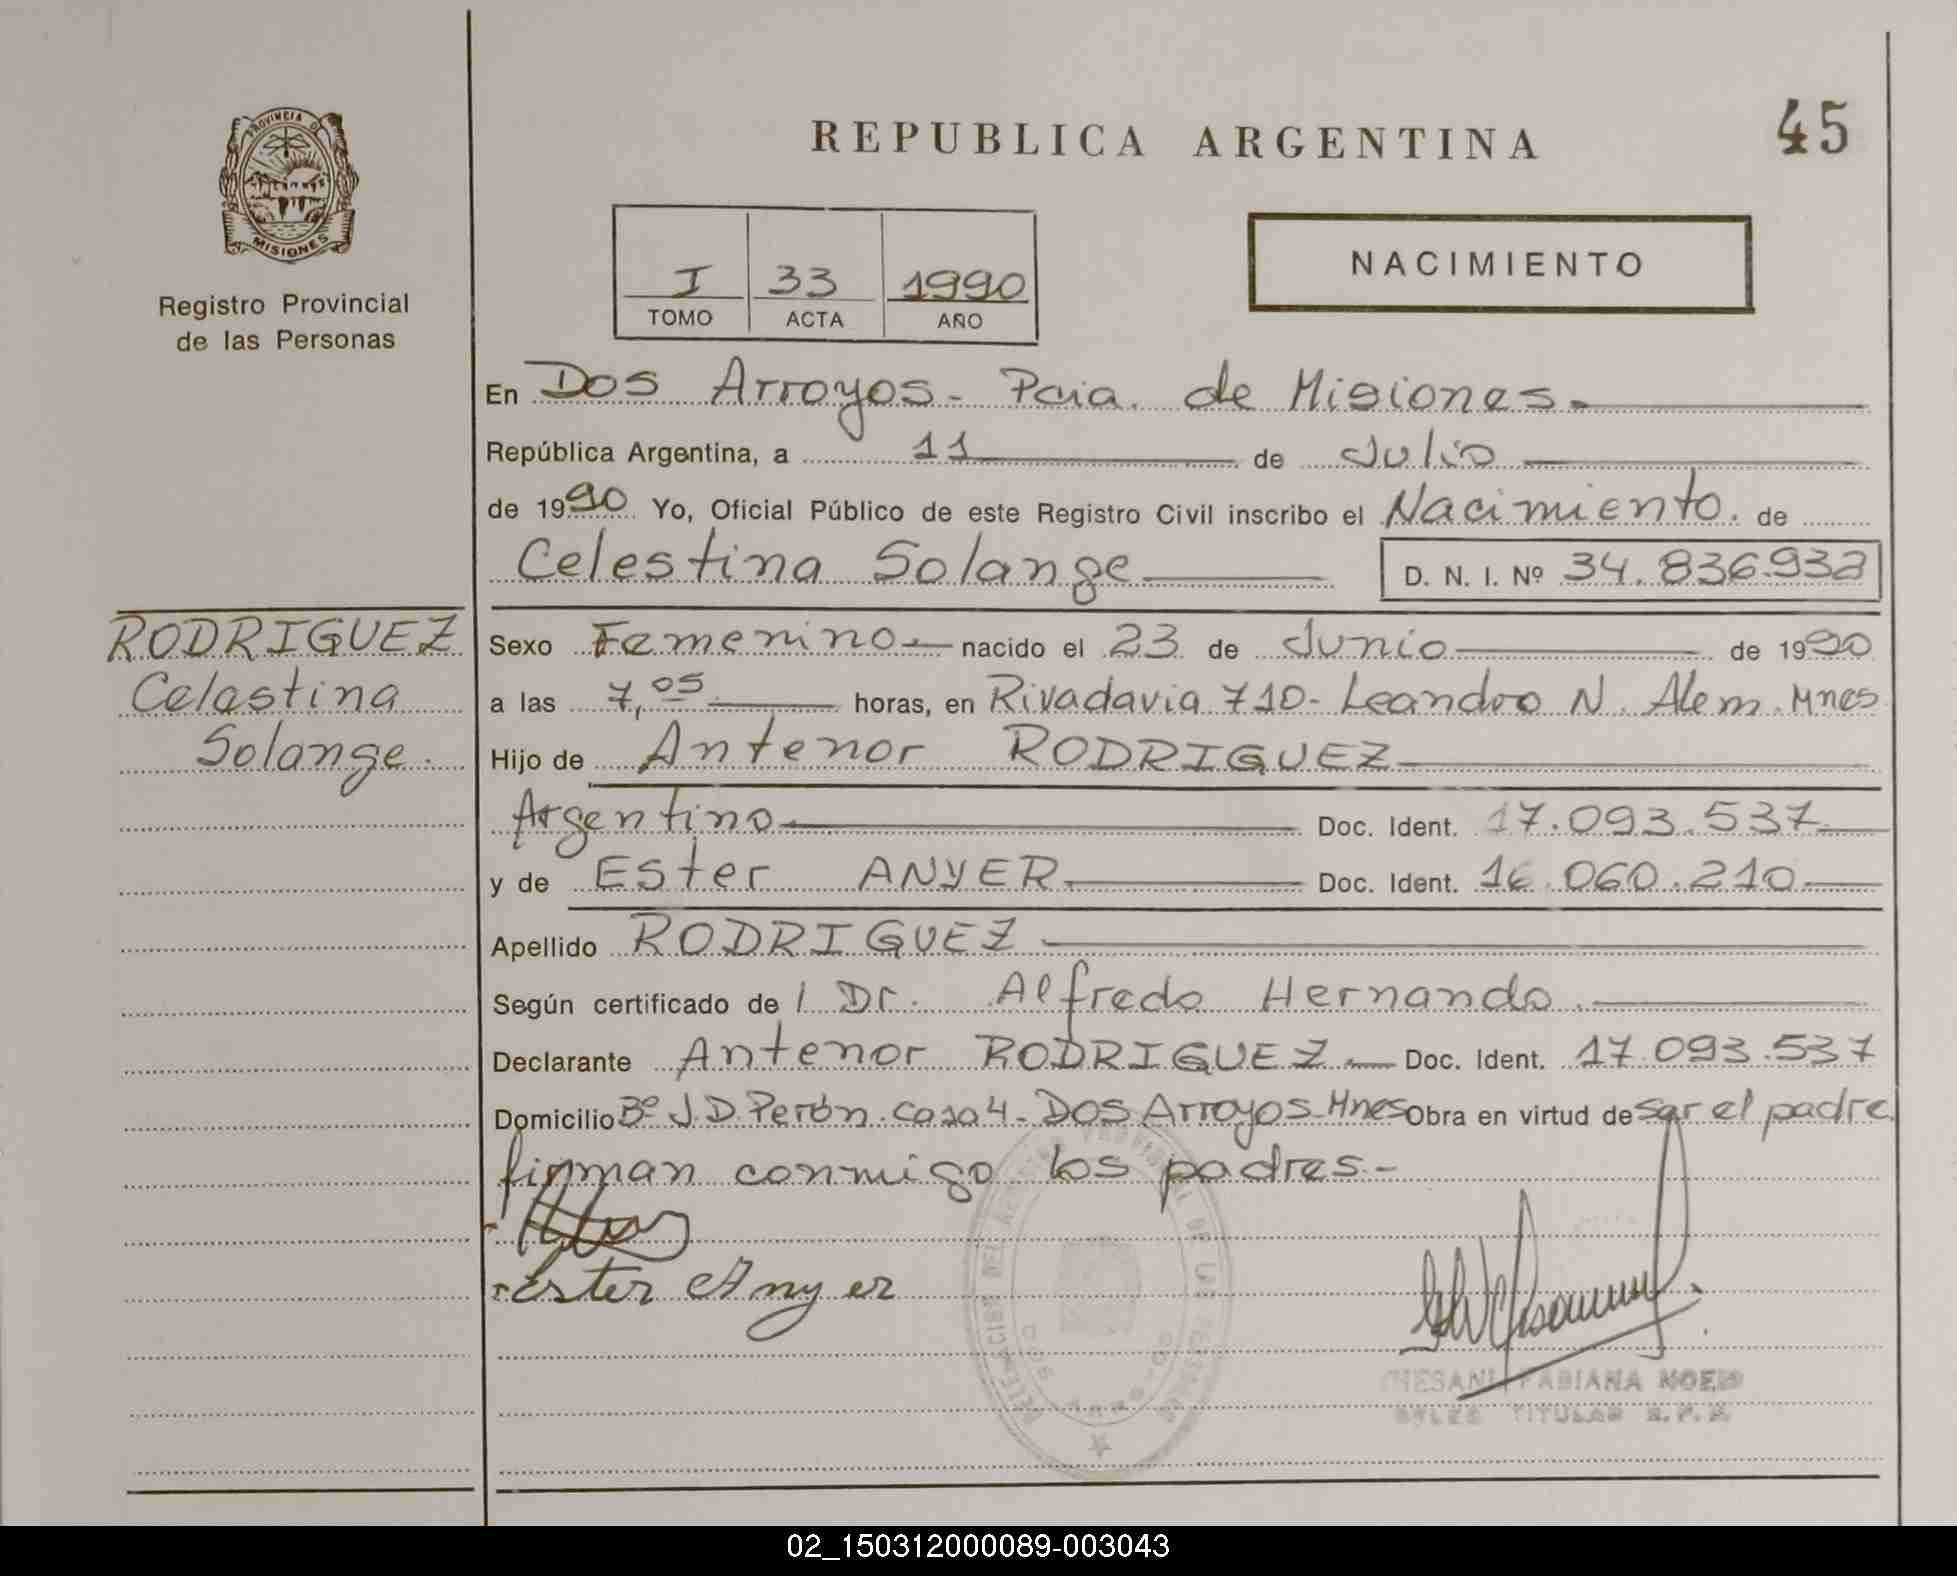 REPUBLICA ARGENTINA
45
PROVINCIA DE
MISIONES
Registro Provincial
de las Personas
I 33 1990
TOMO ACTA AÑO
NACIMIENTO
En Dos Arroyos - Pcia. de Misiones.
República Argentina, a 11 de Julio
de 1990 Yo, Oficial Público de este Registro Civil inscribo el Nacimiento. de
Celestina Solange D. N. I. Nº 34.836.932
RODRIGUEZ
Celestina
Solange.
Sexo Femenino nacido el 23 de Junio de 1990
a las 7,05 horas, en Rivadavia 710 - Leandro N. Alem. Mnes
Hijo de Antenor RODRIGUEZ
Argentino Doc. Ident. 17.093.537
y de Ester ANYER Doc. Ident. 16.060.210
Apellido RODRIGUEZ
Según certificado de l Dr. Alfredo Hernando.
Declarante Antenor RODRIGUEZ Doc. Ident. 17.093.537
Domicilio Bº J.D. Perón. casa 4 - Dos Arroyos - Mnes Obra en virtud de ser el padre
firman conmigo los padres.-
Ester Anyer
FABIANA NOEMI
TITULAR R.P.P.
02_150312000089-003043